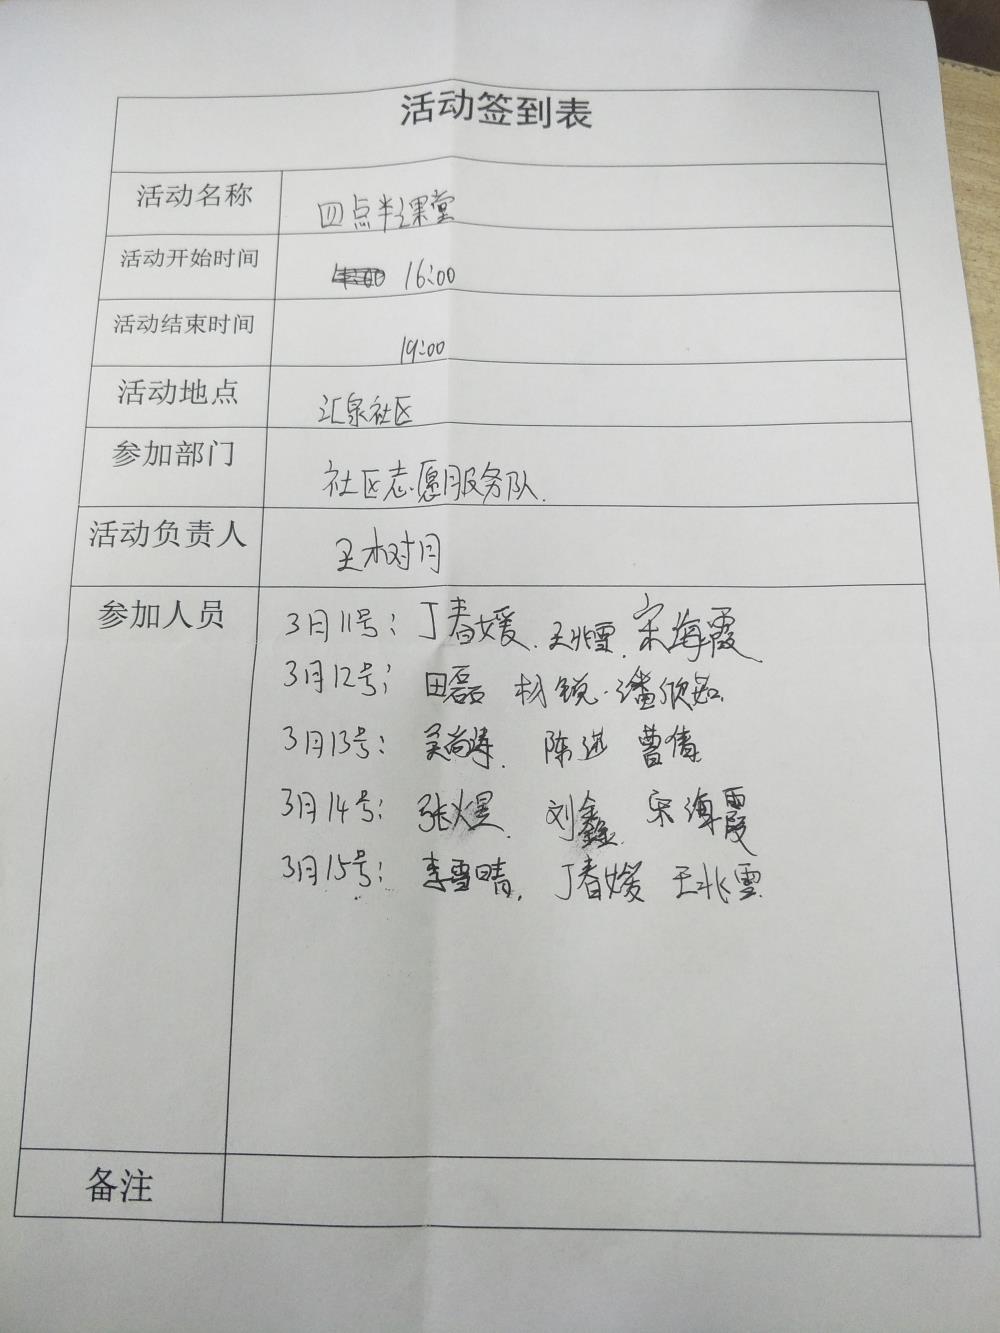 活动签到表
活动名称 四点半课堂
活动开始时间 16:00
活动结束时间 19:00
活动地点 汇泉社区
参加部门 社区志愿服务队.
活动负责人 王树月
参加人员 3月11号: 丁春媛. 王兆雪. 宋海霞.
3月12号: 田磊 杨锐. 潘欣知.
3月13号: 吴尚涛. 陈进 曹倩
3月14号: 张煜. 刘鑫. 宋海霞
3月15号: 李雪晴. 丁春媛 王兆雪.
备注